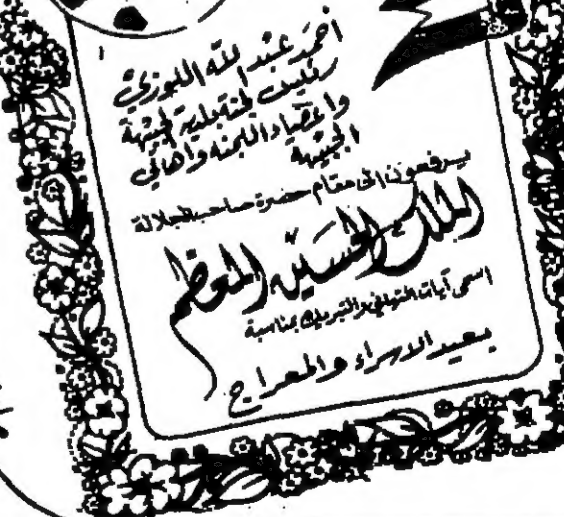 أحمد عبد الله اللوزي
رئيس لجنة بلدية الجبيهة
واعضاء اللجنه واهالي
الجبيهة
يرفعون الى مقام حضرة صاحب الجلالة
الملك الحسين المعظم
اسمى آيات التهاني والتبريك بمناسبة
بعيد الاسراء والمعراج